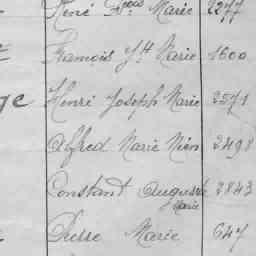 René Fçois Marie 2277
François Jh Marie 1600
ge Henri Joseph Marie 2571
Alfred Marie 2498
Constant Auguste 2843
Marie
Pierre Marie 647